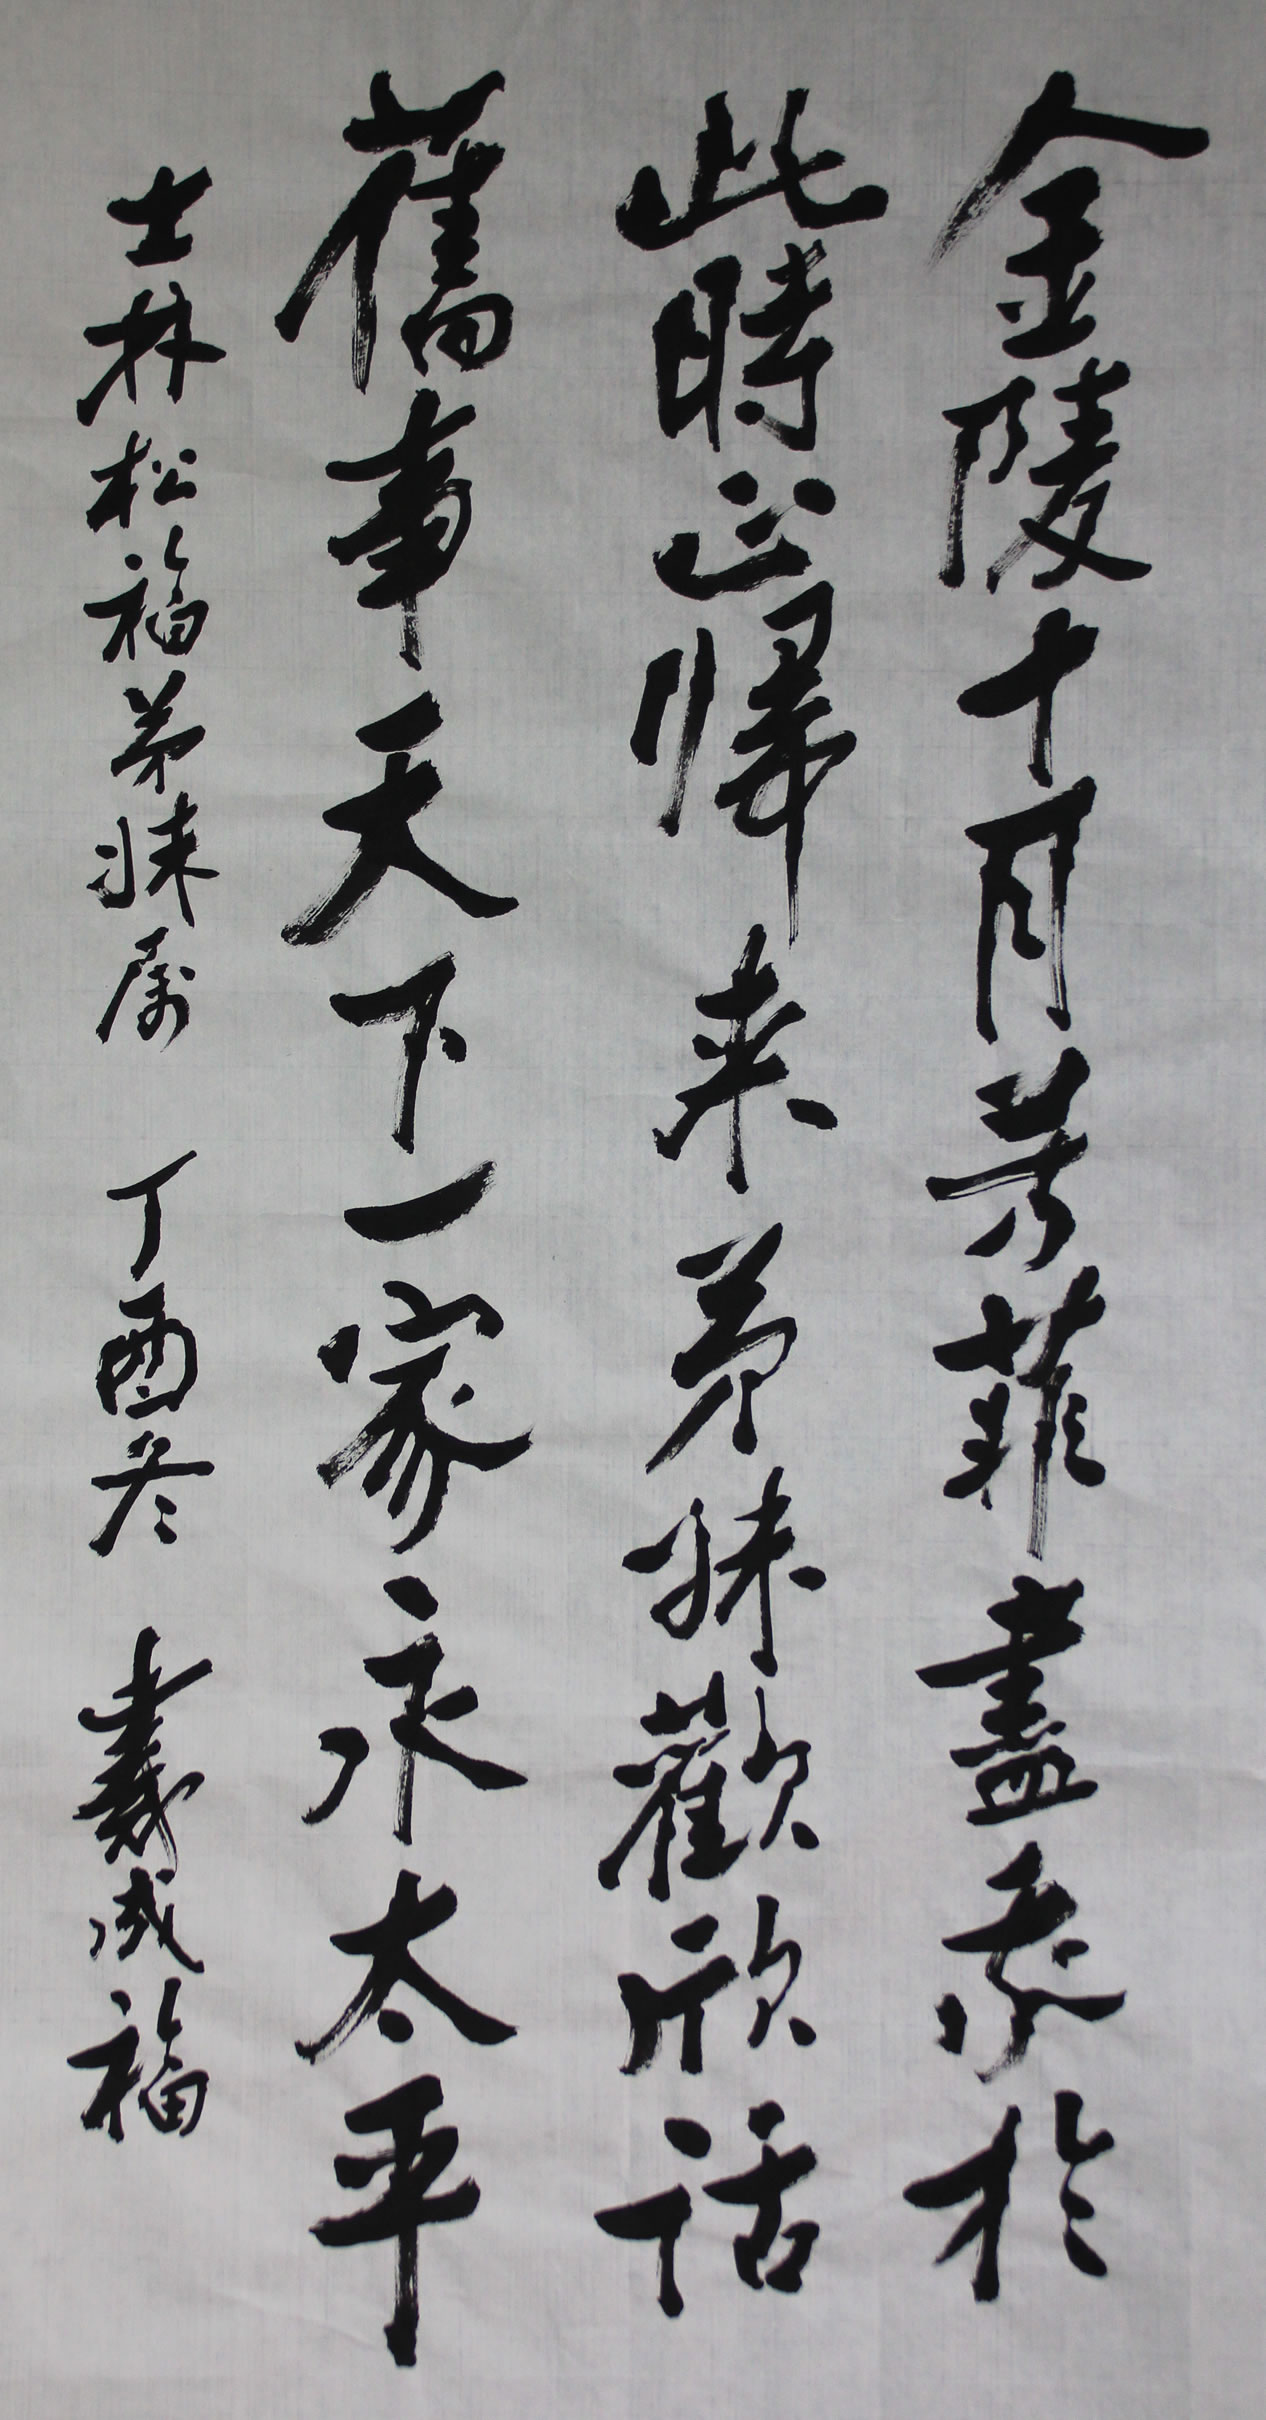 金陵十月芳菲盡我於
此時正歸来弟妹歡欣話
舊事天下一家永太平
士林松福弟妹属 丁酉冬 成福